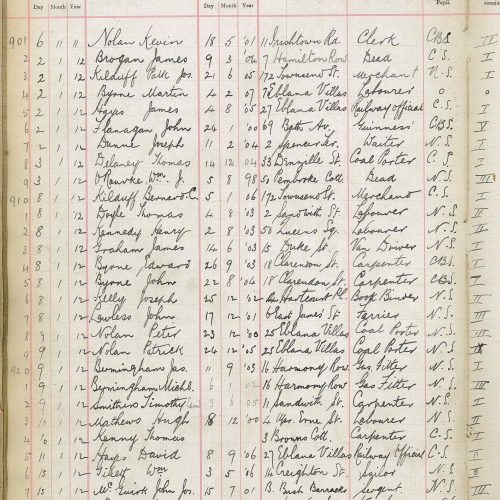 Day Month Year Day Month Year Pupil.
901 6 11 11 Nolan Kevin 18 5 '01 11 Irishtown Rd. Clerk C.B.S. II
2 2 1 12 Brogan James 9 3 Hamilton Row Dead C.S. I
3 2 1 12 Kilduff Patk Jos. 21 6 05 172 Townsend St. Merchant N.S. I
4 2 1 12 Byrne Martin 4 2 07 7 Eblana Villas Labourer 0 0
5 2 1 12 Hayes James 4 8 05 27 Eblana Villas Railway Official C.S. I
6 2 1 12 Flanagan John 24 1 '00 69 Bath Av. Guinness C.B.S. V
7 2 1 12 Dunne Joseph 11 2 04 2 Spencer Waiter N.S. I
8 3 1 12 Delaney Thomas 14 12 04 33 Denzille St. Coal Porter C.S. I
9 3 1 12 O'Rourke Wm. J. 5 8 98 50 Pembroke Cott. Dead N.S.
910 8 1 12 Kilduff Bernard C. 5 1 06 172 Townsend St. Merchant C.S. I
1 8 1 12 Doyle Thomas 4 8 '03 2 Sandwith St. Labourer N.S.
2 8 1 12 Kennedy Henry 2 8 '03 50 Queens Sq. Labourer N.S.
3 8 1 12 Graham James 14 6 '03 15 Duke St. Van Driver N.S. I
4 8 1 12 Byrne Edward 26 9 '03 18 Clarendon St. Carpenter C.B.S. I
5 8 1 12 Byrne John 22 8 '04 18 Clarendon St. Carpenter C.B.S. I
6 8 1 12 Kelly Joseph 25 12 '02 Harcourt Pl. Book N.S. II
7 8 1 12 Lawless John 17 12 '01 East James St. Farrier N.S.
8 9 1 12 Nolan Peter 23 12 '00 25 Eblana Villas Coal Porter N.S. III
9 9 1 12 Nolan Patrick 24 12 '05 25 Eblana Villas Coal Porter N.S. I
920 9 1 12 Bermingham Jas. 11 9 '03 16 Harmony Row Gas Fitter N.S.
1 9 1 12 Bermingham Michl. 6 1 02 16 Harmony Row Gas Fitter N.S.
2 9 1 12 Smithers Timothy 3 6 05 11 Sandwith St. Carpenter N.S. I
3 10 1 12 Mathews Hugh 18 12 '00 4 Upr. Erne St. Labourer N.S.
4 10 1 12 Kenny Thomas 3 Brooms Cott. Carpenter C.S.
5 11 1 12 Hayes David 8 9 06 27 Eblana Villas Railway Official C.S. I
6 15 1 12 Wm 3 5 '06 14 Creighton St. Sailor N.S.
15 1 12 McGuirk John Jos. 15 7 01 B. Bush Barracks Sergent N.S.